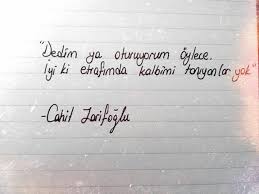 "Dedim ya oturuyorum öylece.
İyi ki etrafımda kalbimi tanıyanlar yok"
-Cahit Zarifoğlu